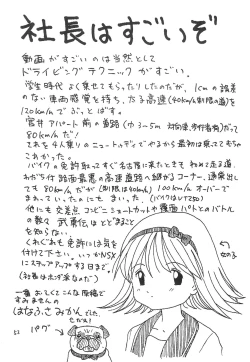 社長はすごいぞ
動画がすごいのは当然として
ドライビングテクニックがすごい。
学生時代よく乗せてもらったりしたのだが、1cmの誤差
のない車両感覚を持ち、たる高速(40km/h制限の道)を
120km/hでぶっとばす。
菅井アパート前の道路(巾3〜5m 対向車、歩行者有)だって
80km/hだ!
これを4人乗りのニュートゥデイでやるから最初は乗っててもちゃ
こわかった。
バイクの免許取ってすぐ名古屋に来たときも初めて走る道、
わだち付路面最悪の高速道路へ継がるコーナー、連乗出し
ても80km/hだが(制限は40km/h)100km/hオーバーで
まわっていったのにもまいった。(バイクはVT250)
他にも交差点コンビニショートカットや覆面パトとのバトル
の数々武勇伝はとどまること
を知らない。
くれぐれも免許には気を
付けて下さい。いつかNSX
にステップアップする日まで。
(社長はホンダ党なのだ)
一番おしくてこんな原稿で
すみませんの
(はなふさみかんでした。
たかみ)
パグ
知のる